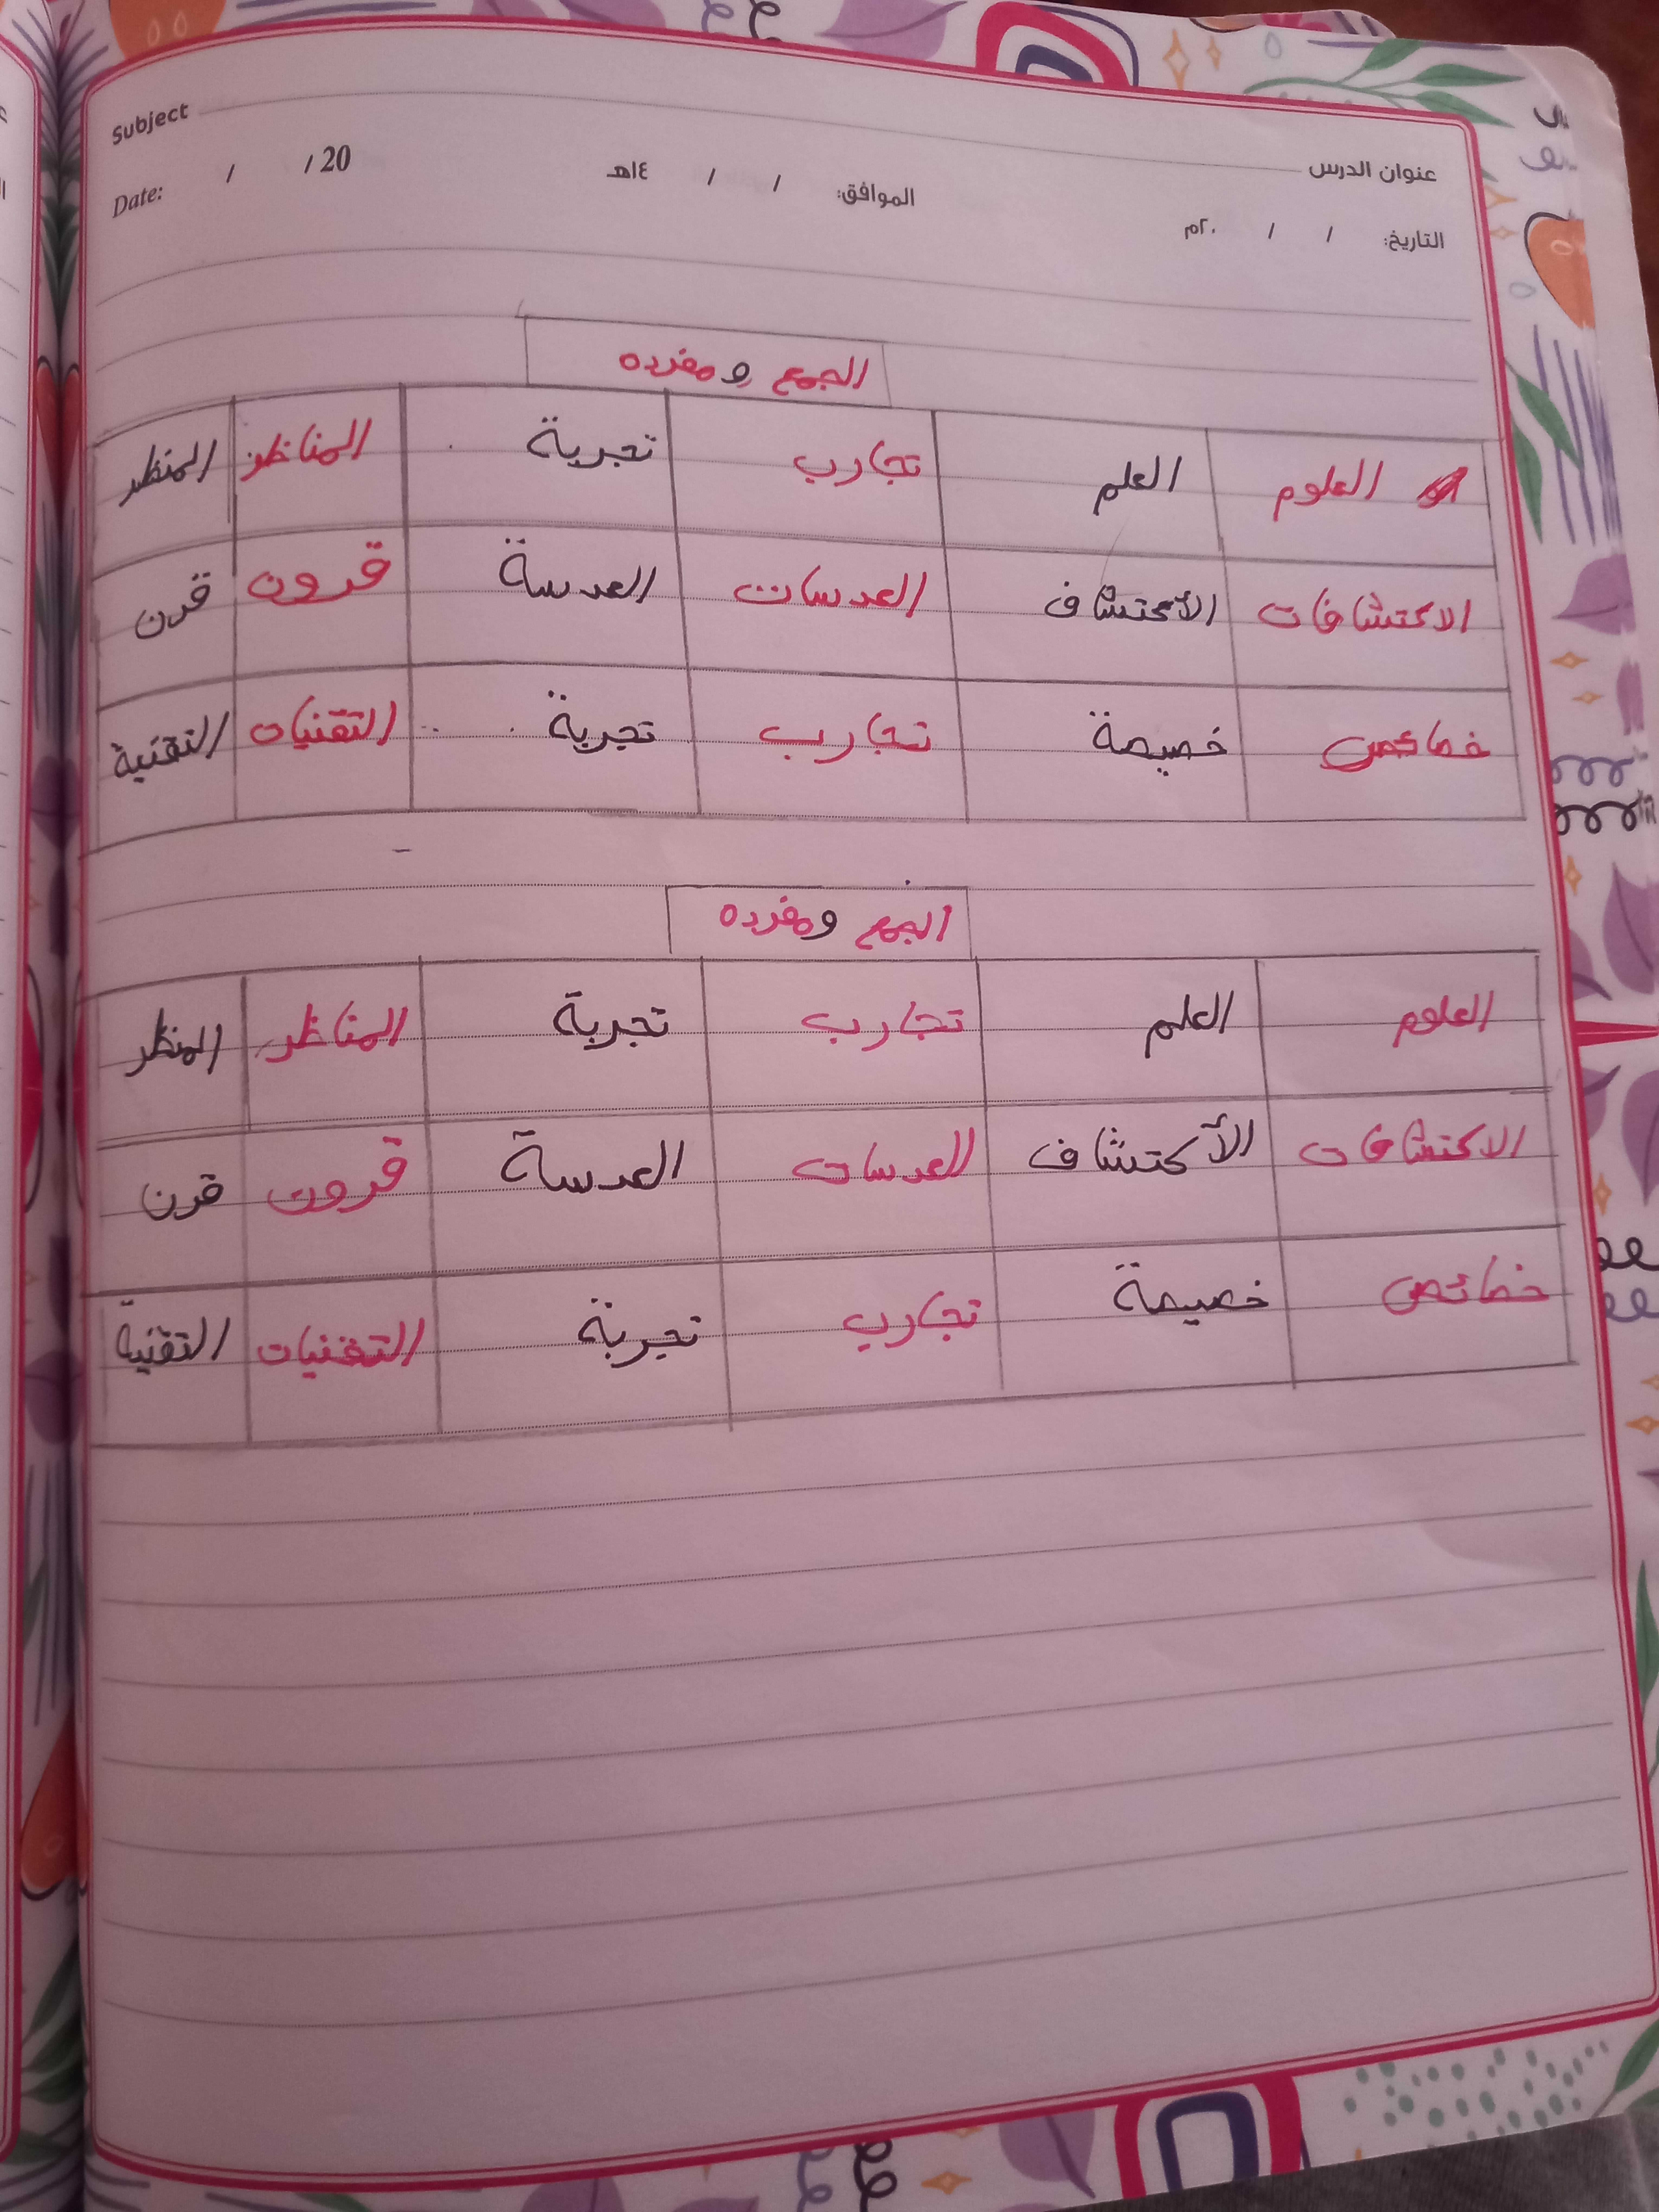 Subject عنوان الدرس
Date: / / 20 الموافق: / / ١٤هـ
التاريخ: / / ٢٠م
الجمع و مفرده
العلوم العلم تجارب تجربة المناظر المنظر
الاكتشافات الأكتشاف العدسات العدسة قرون قرن
خصائص خصيصة تجارب تجربة التقنيات التقنية
الجمع ومفرده
العلوم العلم تجارب تجربة المناظر المنظر
الاكتشافات الأكتشاف العدسات العدسة قرون قرن
خصائص خصيصة تجارب تجربة التقنيات التقنية